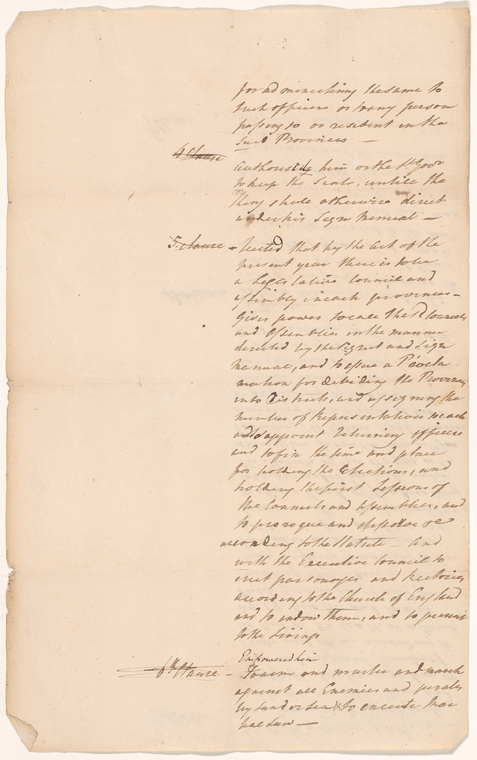 for administering the same to
such officers or to any person
passing to or resident in the
said Provinces —
4 Clause
authorises him or the Lt Govr
to keep the Seals, untill the
King shall otherwise direct
under his Sign Manual —
5 Clause — Recited that by the Act of the
present year there is to be
a Legislative Council and
assembly in each province —
Gives power to call the Councils
and Assemblies in the manner
directed by the Signet and Sign
Manual, and to issue a Procla
mation for dividing the Provinces
into Districts, and assigning the
number of Representatives to each
and to appoint Returning officers
and to fix the time and place
for holding the Elections, and
holding the first Sessions of
the Councils and Assemblies, and
to prorogue and dissolve
according to the Statute — And
with the Executive Council to
erect parsonages and Rectories
according to the Church of England
and to endow them, and to present
to the Livings
6th Clause — Empowered him
To arm and muster and march
against all Enemies and
by land or Sea & to execute Mar
tial Law —